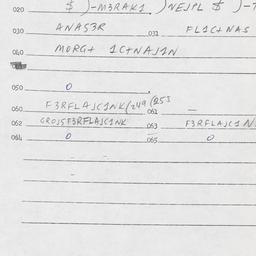 020 $ )-M3RAK1 )NEJPL $ )-
030 ANAS3R 031 FL1C+NAS
040 MORG+ 1C+NAJ1N
050 0
060 F3RFLAJC1NK(249 (253 061 —
062 GROJSF3RFLAJC1NK 063 F3RFLAJC1N
064 0 065 0